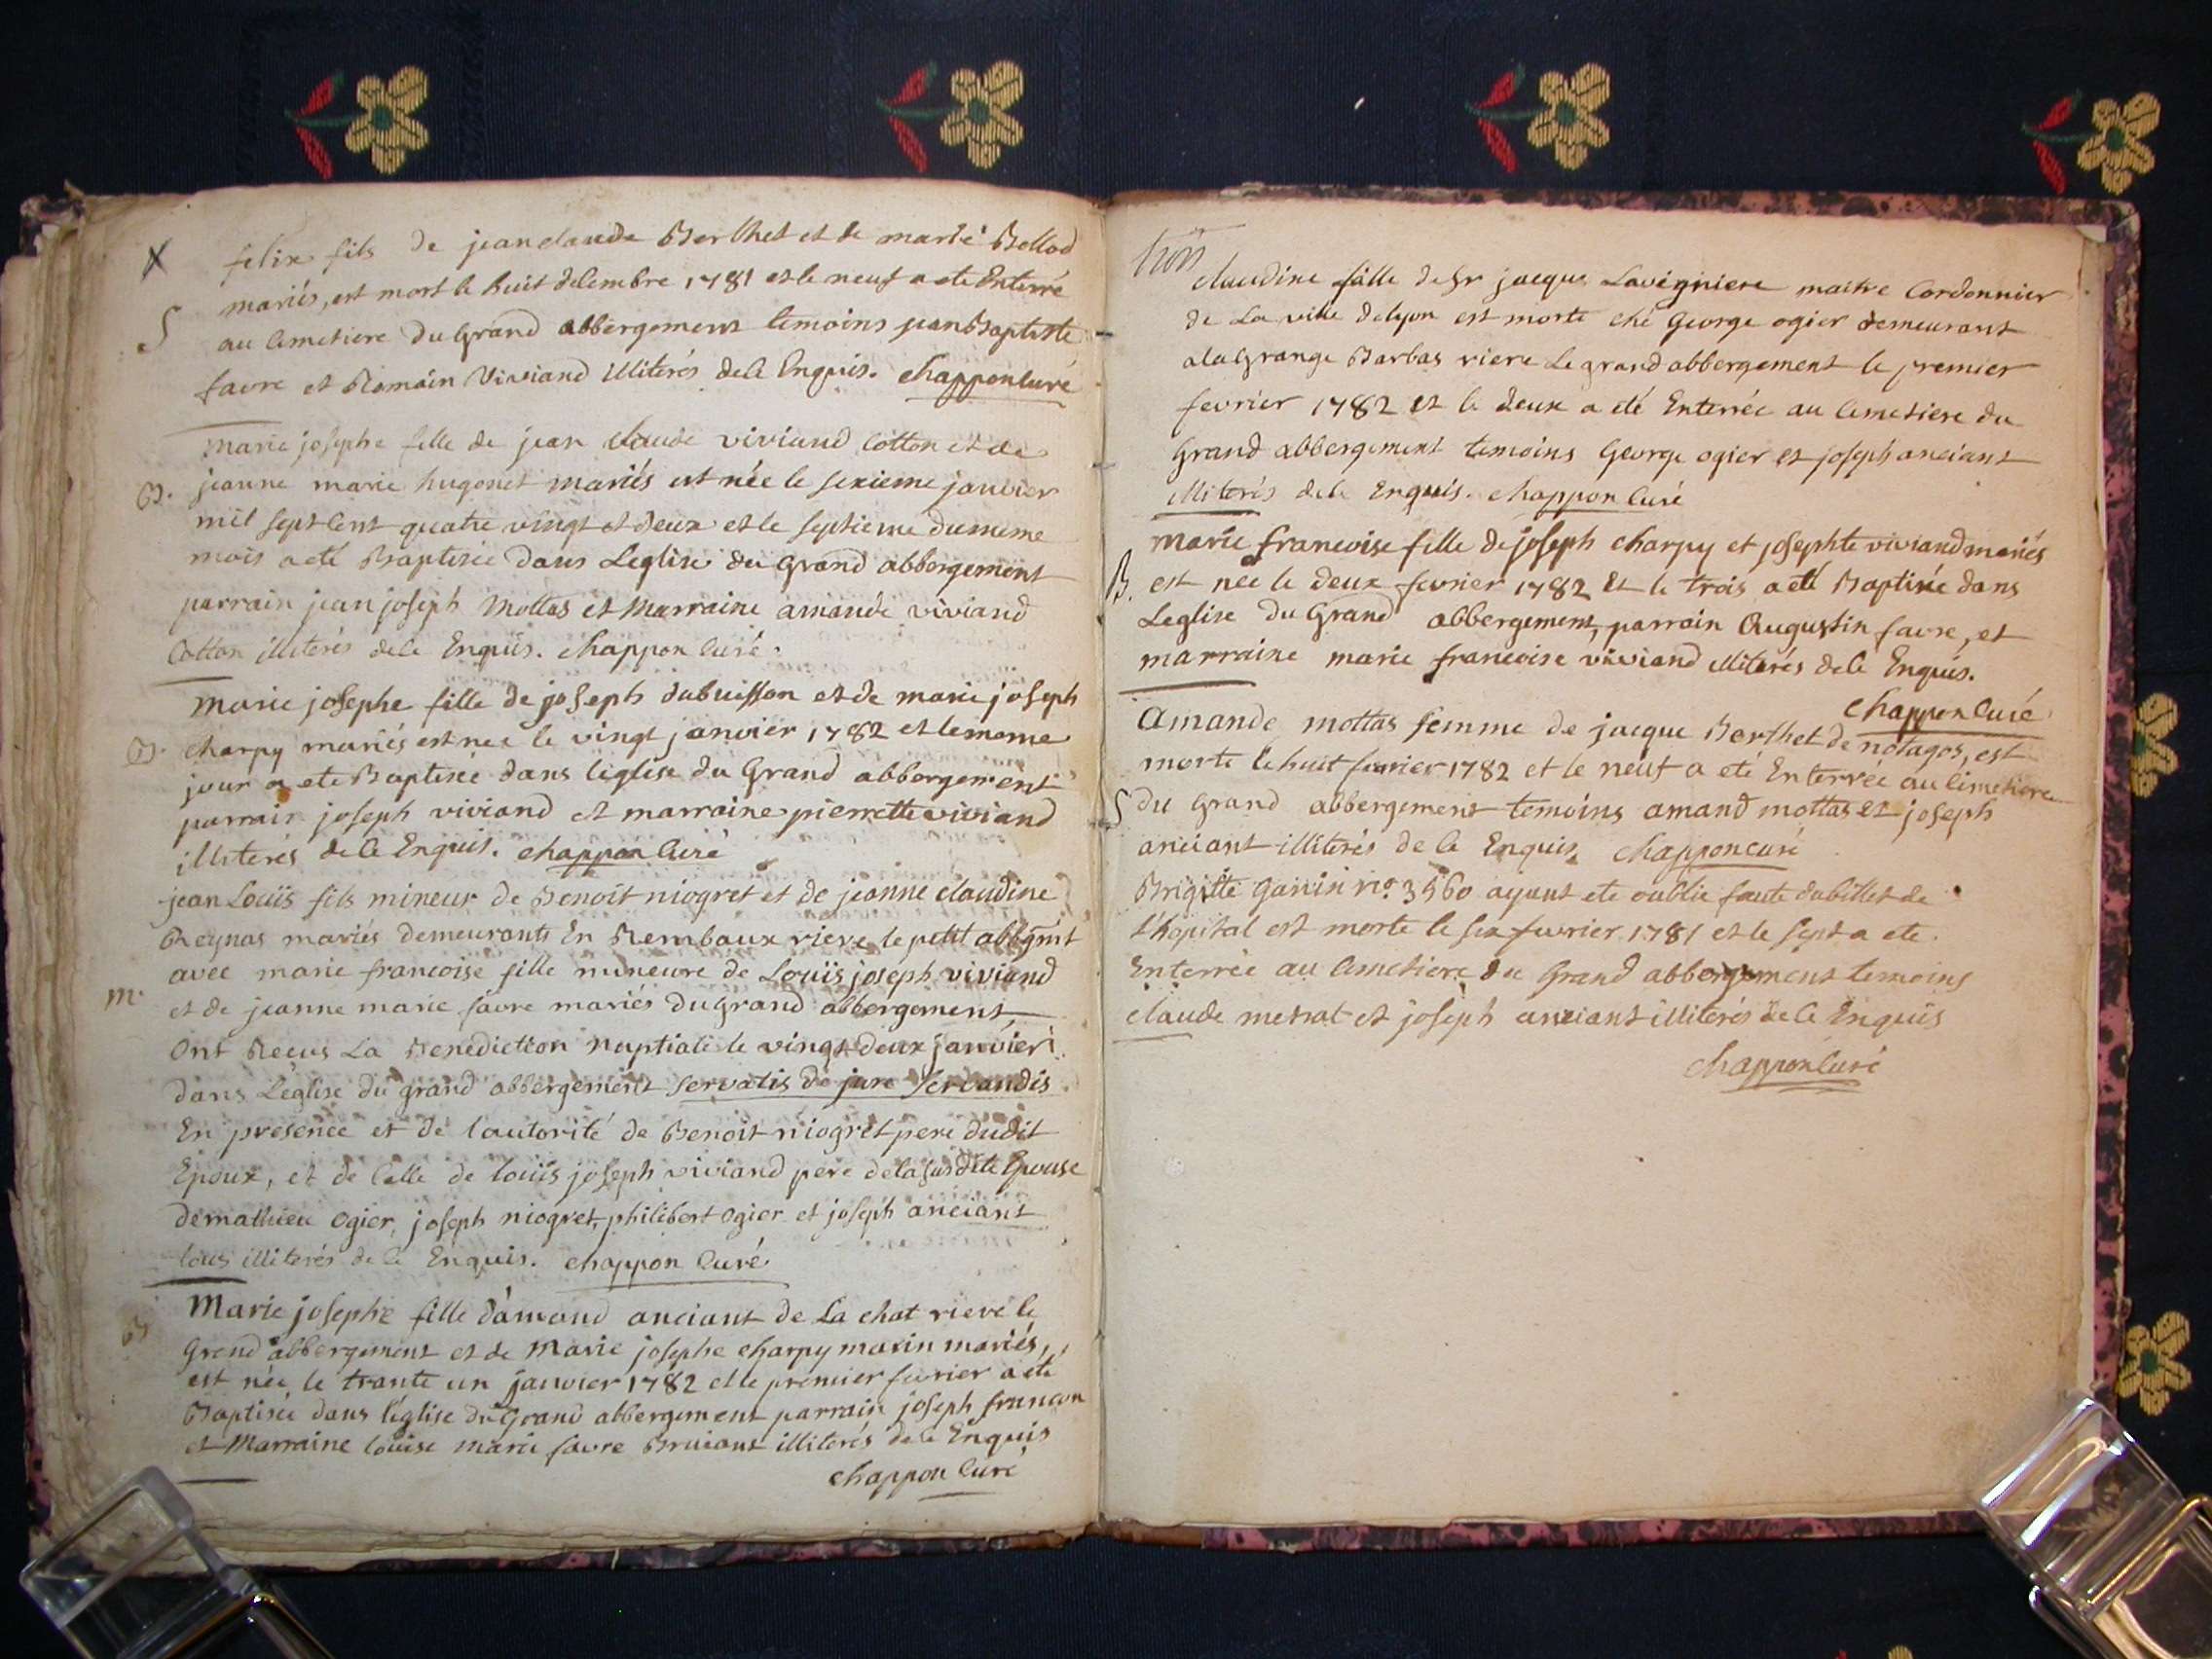 felix fils de jean claude Berthet et de marie Bollod
mariés, est mort le huit decembre 1781 et le neuf a ete Enterré
S
au cimetiere du grand abbergement temoins jean Baptiste
favre et Romain Viviand illiterés de ce Enquis. chappon curé
marie josephe fille de jean claude viviand Cotton et de
B. jeanne marie hugonet mariés est née le sixieme janvier
mil sept cent quatre vingt et deux et le septieme du meme
mois a eté Baptisée dans Leglise du Grand abbergement
parrain jean joseph Mottas et Marraine amande viviand
Cotton illiterés de ce Enquis. chappon curé.
Marie josephe fille de joseph dubuisson et de marie joseph
B. charpy mariés est nee le vingt janvier 1782 et le meme
jour a ete Baptisée dans leglise du Grand abbergement
parrain joseph viviand et marraine pierrette viviand
illiterés de ce Enquis. chappon curé
jean Louis fils mineur de Benoit niogret et de jeanne claudine
Reynas mariés demeurants En Rembaux riere le petit abbgmt
avec marie francoise fille mineure de Louis joseph viviand
m. et de jeanne marie favre mariés du Grand abbergement,
Ont Recus La Benediction nuptiale le vingt deux janvier
dans Leglise du grand abbergement servatis de jure servandis
En presence et de l'autorité de Benoit niogret pere dudit
Epoux, et de Celle de louis joseph viviand pere de la susdite Epouse
de mathieu ogier, joseph niogret, philibert ogier et joseph anciant
tous illiterés de ce Enquis. chappon Curé.
B Marie josephe fille d'amand anciant de La chat riere le
Grand abbergement et de Marie josephe charpy maxin mariés,
est née le trante un janvier 1782 et le premier fevrier a eté
Baptisée dans l'église du Grand abbergement parrain joseph francon
et Marraine louise marie favre Bruiant illiterés de ce Enquis
chappon Curé
trois
claudine fille de Sr jacque Lavigniere maitre Cordonnier
de La ville de lyon est morte ché George ogier demeurant
a la Grange Barbas riere Le grand abbergement le premier
fevrier 1782 et le deux a eté Enterrée au cimetiere du
Grand abbergement temoins George ogier et joseph anciant
illiterés de ce Enquis. chappon Curé
Marie francoise fille de joseph charpy et josephte viviand mariés
B. est née le deux fevrier 1782 Et le trois a eté Baptisée dans
Leglise du Grand abbergement, parrain Augustin favre, et
marraine marie francoise viviand illiterés de ce Enquis.
chappon Curé
Amande mottas femme de jacque Berthet de notagos, est
morte le huit fevrier 1782 et le neuf a eté Enterrée au cimetiere
S du Grand abbergement temoins amand mottas et joseph
anciant illiterés de ce Enquis, chappon curé
Brigitte Ganin no. 3560 ayant ete oublie faute du billet de
l'hopital est morte le six fevrier 1781 et le sept a ete
Enterrée au cimetiere du Grand abbergement temoins
claude mesrat et joseph anciant illiterés de ce Enquis
chappon Curé